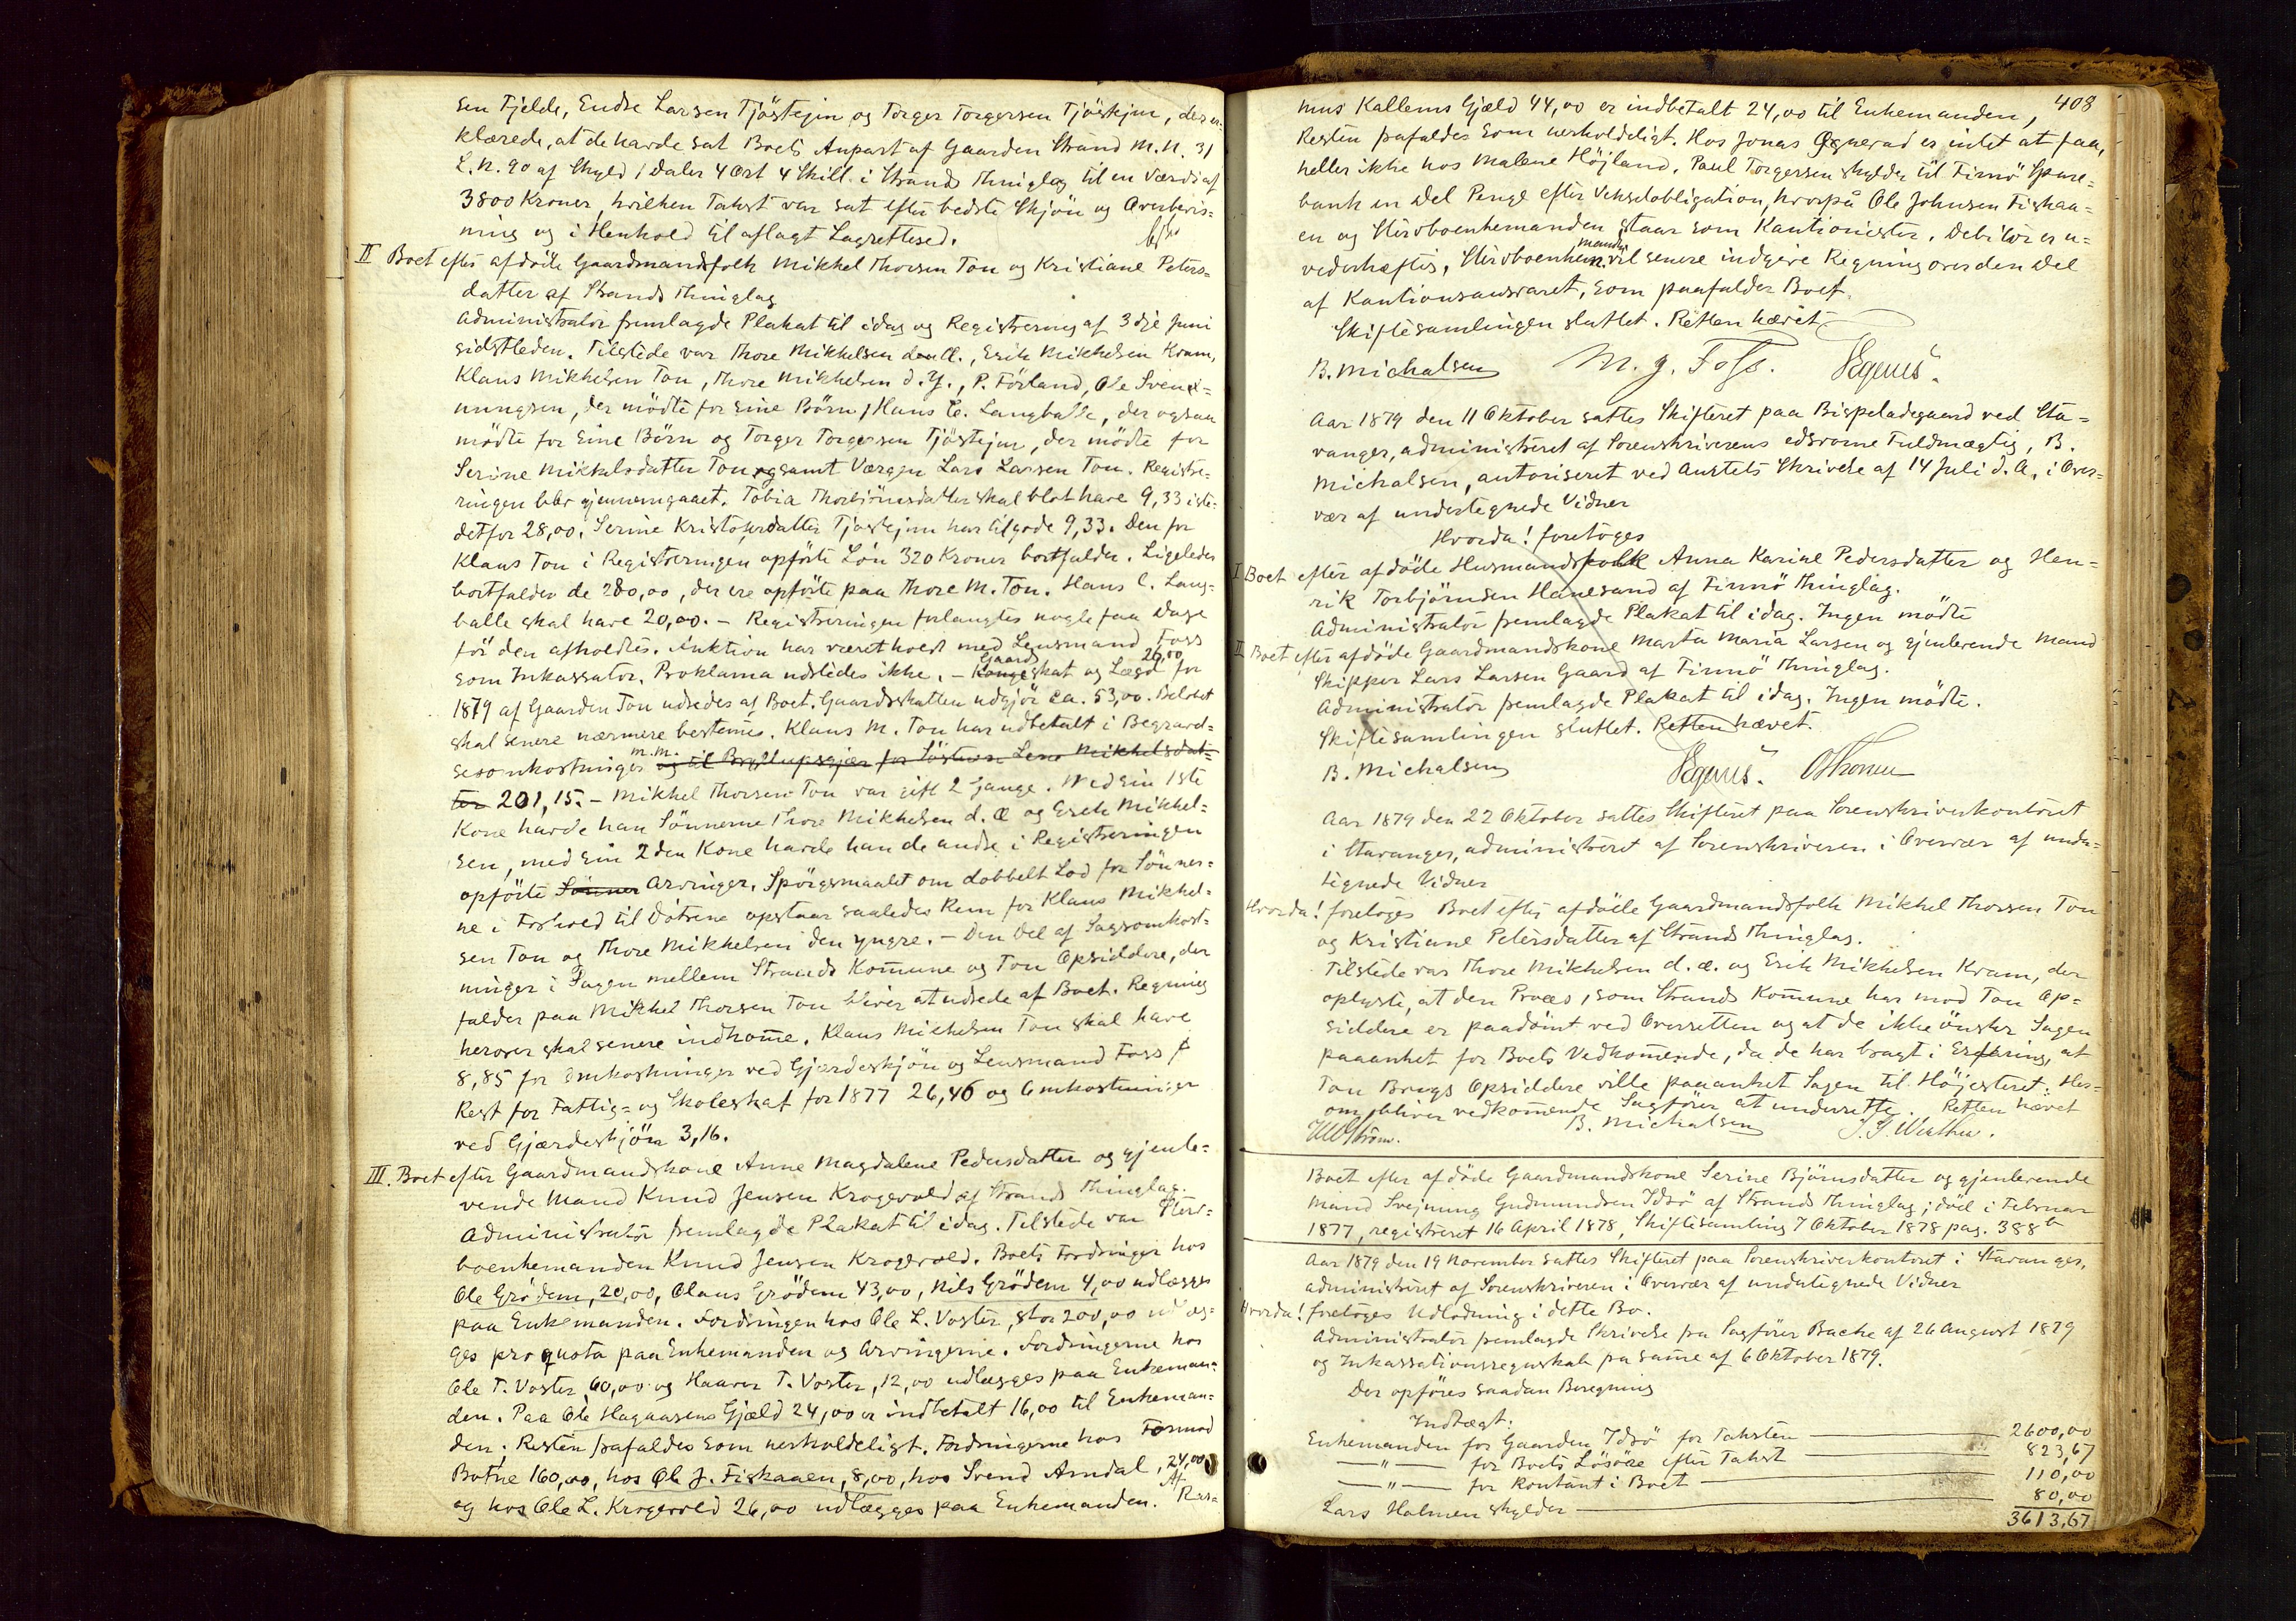 sen Fjelde, Endre Larsen Tjöstejm og Torger Torgersen Tjöstejm, der er-
klærede, at de havde sat Boets Anpart af Gaarden Strand M.N. 31
L.N. 90 af Skyld 1 Daler 4 Ort 4 Skill. i Strands Thinglag til en Værdi af
3800 Kroner, hvilken Taxst var sat efter bedste Skjön og Overbevis-
ning og i Henhold til aflagt Lagrettesed.
II Boet efter afdöde Gaardmandsfolk Mikkel Thorsen Tou og Kristiane Peters-
datter af Strands Thinglag
Administrator fremlagde Plakat til idag og Registrering af 3dje Juni
sidstleden. Tilstede var Thore Mikkelsen den Æ., Erik Mikkelsen Kram,
Klaus Mikkelsen Tou, Thore Mikkelsen d. Y., P. Förland, Ole Svend-
nungsen, der mödte for sine Börn, Hans C. Langballe, der ogsaa
mödte for sine Börn og Torger Torgersen Tjöstejm, der mödte for
Serine Mikkelsdatter Tou og samt Værgen Lars Larsen Tou. Registre-
ringen blev gjennemgaaet. Tobia Thorbjörnsdatter skal blot have 9,33 iste-
detfor 28,00. Serine Kristofersdatter Tjöstejm har tilgode 9,33. Den for
Klaus Tou i Registreringen opförte Lön 320 Kroner bortfalder. Ligeledes
bortfalder de 280,00, der ere opförte paa Thore M. Tou. Hans C. Lang-
balle skal have 20,00. - Registreringen forlangtes nogle faa Dage
för den afholdtes. Auktion har været holdt med Lensmand Foss
som Inkassator. Proklama udstedes ikke. - Konge Gaards skat og Lægd 26,00 for
1879 af Gaarden Tou udredes af Boet. Gaardsskatten udgjör ca. 53,00. Belöbet
skal senere nærmere bestemes. Klaus M. Tou har udbetalt i Begravel-
sesomkostninger m.m. og til Bryllupsgjær for Söstren Lene Mikkelsdat-
ter 201,15. - Mikkel Thorsen Tou var gift 2 Gange. Med sin 1ste
Kone havde han Sönnerne Thore Mikkelsen d. Æ og Erik Mikkel-
sen, med sin 2den Kone havde han de andre i Registreringen
opförte Sönner Arvinger. Spörgsmaalet om dobbelt Lod for Sönner-
ne i Forhold til Dötrene opstaar saaledes kun for Klaus Mikkel-
sen Tou og Thore Mikkelsen den yngre. - Den Del af Sagsomkost-
ninger i Sagen mellem Strands Komune og Tou Opsiddere, der
falder paa Mikkel Thorsen Tou bliver at udrede af Boet. Regning
herover skal senere indkome. Klaus Mikkelsen Tou skal have
8,85 for Omkostninger ved Gjerdeskjön og Lensmand Foss
Rest for Fattig- og Skoleskat for 1877 26,46 og Omkostninger
ved Gjærdeskjön 3,16.
III. Boet efter Gaardmandskone Anne Magdalene Pedersdatter og gjenle-
vende Mand Knud Jensen Krogevold af Strands Thinglag.
Administrator fremlagde Plakat til idag. Tilstede var Sterv-
boenkemanden Knud Jensen Krogevold. Boets Fordringer hos
Ole Grödem, 20,00, Olaus Grödem 43,00, Nils Grödem 4,00 udlægges
paa Enkemanden. Fordringen hos Ole L. Voster, stor 200,00 udlæg-
ges pro quota paa Enkemanden og Arvingerne. Fordringerne hos
Ole T. Voster 60,00 og Haaver T. Voster, 12,00 udlægges paa Enkeman-
den. Paa Ole Hagaasens Gjæld 24,00 er indbetalt 16,00 til Enkeman-
den; Resten frafaldes som uerholdeligt. Fordringerne hos Tormod
Botne 160,00, hos Ole J. Fiskaaen, 8,00, hos Svend Arndal, 24,00
og hos Ole L. Krogevold 26,00 udlægges paa Enkemanden. Af Ras-
408
mus Kallems Gjæld 44,00 er indbetalt 24,00 til Enkemanden,
Resten frafaldes som uerholdeligt. Hos Jonas Øgnerød er intet at faa,
heller ikke hos Malene Höjland. Paul Torgersen skylder til Finnö Spare-
bank en Del Penge efter Vekselobligation, hvorpå Ole Johnsen Fiskaa-
en og Stervboenkemanden staar som Kautionister. Debitor er u-
vederhæftig, Stervboenkemanden vil senere indgive Regning over den Del
af Kautionsansvaret, som paafalder Boet.
Skiftesamlingen sluttet. Retten hævet
B. Michalsen M. G. Foss. Vegnus.
Aar 1879 den 11 Oktober sattes Skifteret paa Bispeladegaard ved Sta-
vanger, administreret af Sorenskriverens edsvorne Fuldmægtig, B.
Michalsen, autoriseret ved Amtets Skrivelse af 14 Juli d. A., i Over-
vær af undertegnede Vidner
Hvorda! foretoges
I Boet efter afdöde Husmandsfolk Anna Karine Pedersdatter og Hen-
rik Torbjörnsen Hanesand af Finnö Thinglag.
Administrator fremlagde Plakat til idag. Ingen mödte
II Boet efter afdöde Gaardmandskone Marta Maria Larsen og gjenlevende Mand
Skipper Lars Larsen Gaard af Finnö Thinglag.
Administrator fremlagde Plakat til idag. Ingen mödte.
Skiftesamlingen sluttet. Retten hævet.
B. Michalsen Vegnus. OThronsen
Aar 1879 den 22 Oktober sattes Skifteret paa Sorenskriverkontoret
i Stavanger, administreret af Sorenskriveren i Overvær af under-
tegnede Vidner
Hvorda! foretoges Boet efter afdöde Gaardmandsfolk Mikkel Thorsen Tou
og Kristiane Petersdatter af Strands Thinglag.
Tilstede var Thore Mikkelsen d. æ. og Erik Mikkelsen Kram, der
oplyste, at den Proces, som Strands Komune har mod Tou Op-
siddere er paadömt ved Overretten og at de ikke önsker Sagen
paaanket for Boets Vedkomende, da de har bragt i Erfaring, at
Tou Brugs Opsiddere ville paaanket Sagen til Höjesteret. Her-
om bliver vedkomende Sagförer at underrette. Retten hævet
B. Michalsen
Boet efter afdöde Gaardmandskone Serine Bjørnsdatter og gjenlevende
Mand Svejnung Gudmundsen Idsö af Strands Thinglag; död i Februar
1877, registreret 16 April 1878, Skiftesamling 7 Oktober 1878 pag. 388b
Aar 1879 den 19 November sattes Skifteret paa Sorenskriverkontoret i Stavanger,
administreret af Sorenskriveren i Overvær af undertegnede Vidner
Hvorda! foretoges Udlodning i dette Bo.
Administrator fremlagde Skrivelse fra Sagförer Bache af 26 August 1879
og Inkassationsregnskab fra same af 6 Oktober 1879.
Der opföres saadan Beregning
Indtægt:
Enkemanden for Gaarden Idsö for Taksten 2600,00
—"— for Boets Lösöre efter Takst 823,67
—"— for Kontant i Boet 110,00
Lars Holmen skylder 80,00
3613,67